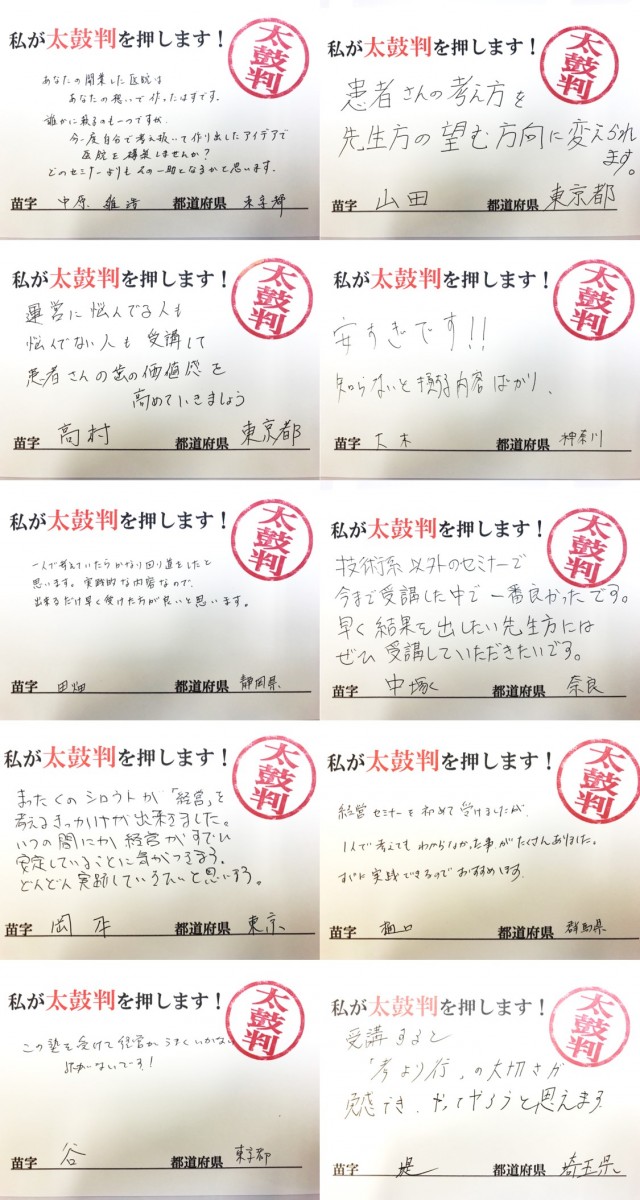 私が太鼓判を押します！
太鼓判
あなたの開業した医院は
あなたの想いで作ったはずです。
誰かに頼るのも一つですが、
今一度自分で考え抜いて作り出したアイデアで
医院を構築しませんか？
どのセミナーよりもその一助となるかと思います。
苗字 中原 都道府県 東京都
私が太鼓判を押します！
太鼓判
患者さんの考え方を
先生方の望む方向に変えられ
ます。
苗字 山田 都道府県 東京都
私が太鼓判を押します！
太鼓判
運営に悩んでる人も
悩んでない人も受講して
患者さんの歯の価値感を
高めていきましょう
苗字 高村 都道府県 東京都
私が太鼓判を押します！
太鼓判
安すぎです!!
知らないと損する内容ばかり、
苗字 大木 都道府県 神奈川
私が太鼓判を押します！
太鼓判
一人で考えていたらかなり回り道をしたと
思います。実践的な内容なので、
出来るだけ早く受けた方が良いと思います。
苗字 田畑 都道府県 静岡県
私が太鼓判を押します！
太鼓判
技術系以外のセミナーで
今まで受講した中で一番良かったです。
早く結果を出したい先生方には
ぜひ受講していただきたいです。
苗字 中塚 都道府県 奈良
私が太鼓判を押します！
太鼓判
まったくのシロウトが「経営」を
考えるきっかけが出来ました。
いつの間にか経営がすでに
安定していることに気がつきます。
どんどん実践していきたいと思います。
苗字 岡本 都道府県 東京
私が太鼓判を押します！
太鼓判
経営セミナーを初めて受けましたが、
1人で考えてもわからなかった事がたくさんありました。
すぐに実践できるのでおすすめします。
苗字 樋口 都道府県 群馬県
私が太鼓判を押します！
太鼓判
この塾を受けて経営がうまくいかない
訳がないです！
苗字 谷 都道府県 東京都
私が太鼓判を押します！
太鼓判
受講すると
「考より行」の大切さが
実感でき、やってやろうと思えます
苗字 堤 都道府県 埼玉県